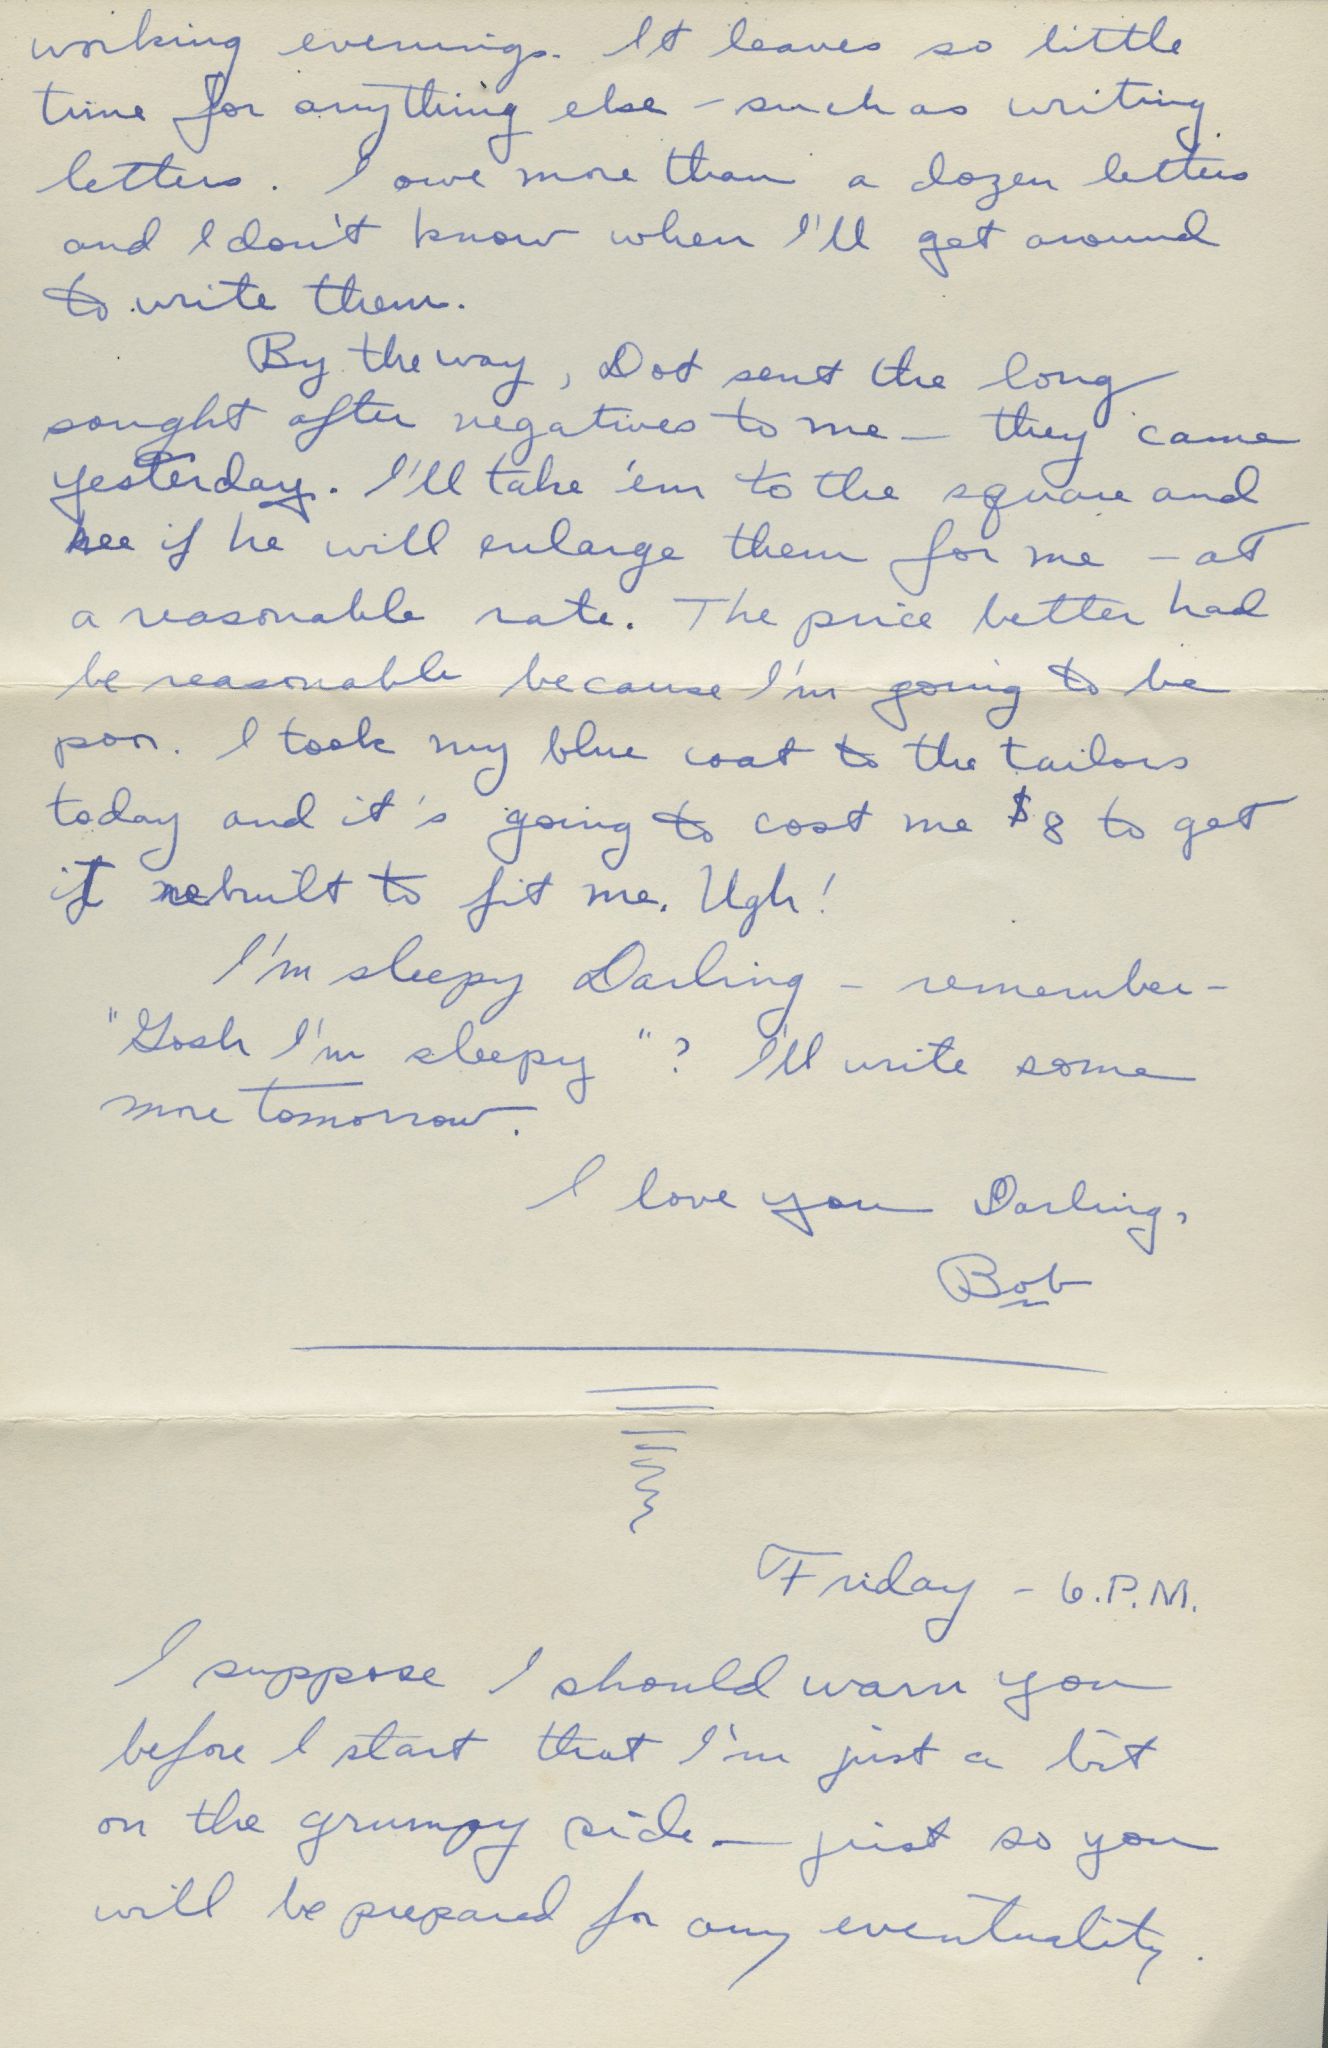 working evenings. It leaves so little
time for anything else – such as writing
letters. I owe more than a dozen letters
and I don't know when I'll get around
to write them.
By the way, Dot sent the long
sought after negatives to me – they came
yesterday. I'll take 'em to the square and
see if he will enlarge them for me – at
a reasonable rate. The price better had
be reasonable because I'm going to be
poor. I took my blue coat to the tailors
today and it's going to cost me $8 to get
it rebuilt to fit me. Ugh!
I'm sleepy Darling – remember –
"Gosh I'm sleepy"? I'll write some
more tomorrow.
I love you Darling,
Bob
Friday – 6.P.M.
I suppose I should warn you
before I start that I'm just a bit
on the grumpy side – just so you
will be prepared for any eventuality.